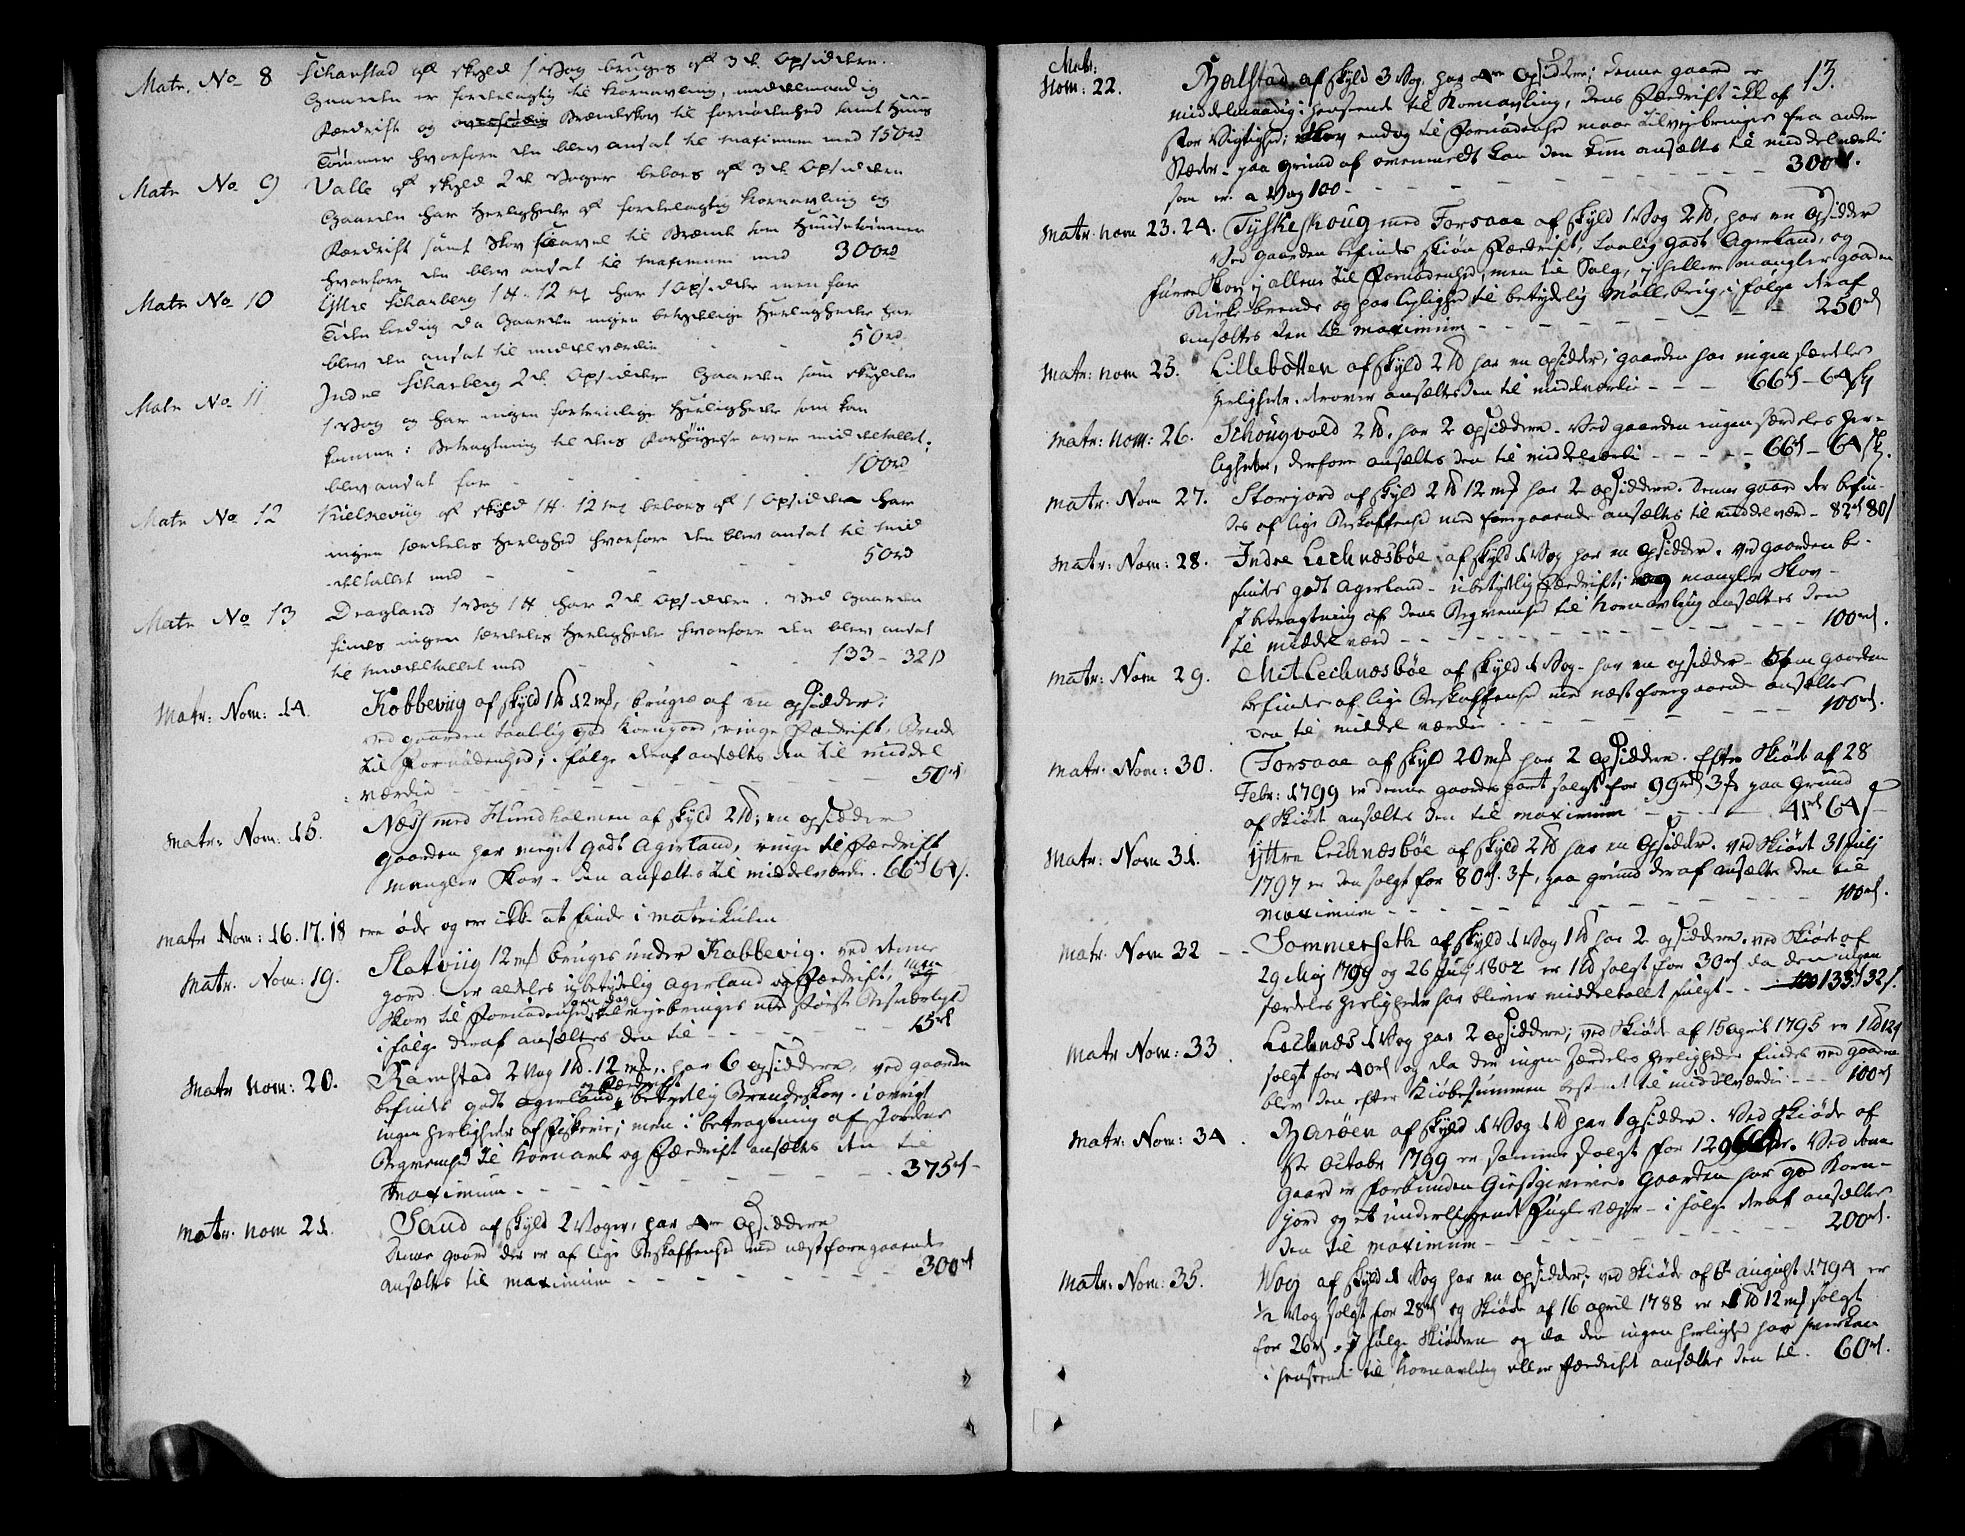 Matr. No 8 Schanstad af skyld 1 Vog bruges af 3de Opsiddere.
Gaarden er fordelagtig til Kornavling, middelmaadig
Færdrift og overflødig Brændeskov til fornødenhed samt Huus
Tømmer hvorfore den blev ansat til maximum med 150 rd
Matr No 9 Valle af skyld 2de Voger beboes af 3de Opsiddere
Gaarden har Herligheder af fordelagtig Kornavling og
Færdrift samt Skov saavel til Brænde som Huustømmer
hvorfore den blev ansat til maximum med 300 rd
Matr No 10 Yttre Schanberg 1 # 12 mk har 1 Opsidder men for
Tiden ledig da Gaarden ingen betydelige Herligheder har
blev den ansat til middelværdie - - 50 rd
Matr No 11 Indre Schanberg 2de Opsiddere Gaarden som skylder
1 Vog og har ingen fortrinlige Herligheder som kan
komme i Betragtning til dens Forhøyelse over middeltallet
blev ansat for - - - 100 rd
Matr No 12 Kielkeviig af skyld 1 # 12 mk beboes af 1 Opsidder har
ingen særdeles Herlighed hvorfore den blev ansat til mid
deltallet med - - - 50 rd
Matr No 13 Dragland 1 Vog 1 # har 2de Opsiddere. Ved Gaarden
findes ingen særdeles Herligheder hvorfore den blev ansat
til Middeltallet med - - - 133 - 32 s
Matr: Nom: 14. Kobbeviig af skyld 1 # 12 mk, bruges af en opsidder;
ved gaarden taalelig god Kornjord, ringe Færdrift, Brende
til Fornødenhed; i følge deraf ansættes den til middel
værdie - - - 50 rd
Matr: Nom: 15. Næss med Hundholmen af skyld 2 #; en opsidder
gaarden har meget godt Agerland, ringe til Færdrift
mangler Skov - den ansættes til middelværdie. 66 rd 64 s.
Matr Nom: 16. 17. 18 ere øde og er ikke at finde i matrikulen
Matr. Nom: 19. Slatviig 12 mk bruges under Kobbevig. ved denne
gord er aldeles ubetydelig agerland og Færdrift, ingen
Skov til Fornødenhed, tilveyebringes med største Besværlighed
i følge deraf ansættes den til - - - 15 rd
Matr Nom: 20. Ramstad 2 Vog 1 #. 12 mk, har 6 opsiddere, ved gaarden
befindes godt agerland, betydelig Brendeskov. i øvrigt
ingen herligheder af Fiskerie; men i betragtning af Jordens
Beqvemhed til Kornavl og Færdrift ansættes den til
maximum - - - 375 rd -
Matr. nom 21. Sand af skyld 2 Voger, har 4re opsiddere
denne gaard der er af lige Beskaffenhed med næstforegaaende
ansættes til maximum - - - 300 rd
Matr:
Nom: 22. Bælstad af skyld 3 Vog, har 4re opsiddere; denne gaard er 13.
middelmaadig i henseende til Kornavling, dens Færdrift ikke af
stor Vigtighed; Skov endog til Fornødenhed maae tilveyebringes fra andre
Stæder - paa grund af ovenmeldte kan den kun ansættes til middelværdie
som er: a Vog 100 - - - 300 rd.
Matr. nom 23. 24. Tyskeskoug med Forsaae af skyld 1 Vog 2 #, har en opsidder
ved gaarden befindes skiøn Færdrift, taalelig godt agerland, og
Furre Skov ej allene til Fornødenhed, men til Salg, ej heller mangler gaarden
Birke brende og har leylighed til betydelig Mølle brug, i følge deraf
ansættes den til maximum - - - 250 rd
Matr: nom 25. Lillebotten af skyld 2 # har en opsidder; gaarden har ingen særdeles
Herligheder. derover ansættes den til middelværdie - - - 66 rd - 64 sk
Matr: nom: 26. Schougvold 2 #, har 2 opsiddere. Ved gaarden ingen særdeles Her-
ligheder, derfore ansættes den til middelværdie - - - 66 rd - 64 sk.
Matr: Nom 27. Storjord af skyld 2 # 12 mk har 2 opsiddere. Denne gaard der befin-
des af lige Beskaffenhed med foregaaende ansættes til middelværd - 82 rd 80 s
Matr: Nom: 28. Indre Lechnæsbøe af skyld 1 Vog har en opsidder. ved gaarden be-
findes godt agerland - ubetydelig Færdrift; mangler Skov -
I betragtning af dens Beqvemhed til Kornavling ansættes den
til middelværd - - - 100 rd.
Matr: Nom 29. Mit Lechnæsbøe af skyld 1 Vog - har en opsidder - gaarden
befindes af lige Beskaffenhed med næst foregaaende ansættes
den til middel værdie - - - 100 rd.
Matr: Nom: 30. Forsaae af skyld 20 mk har 2 opsiddere. Efter Skiøde af 28
Febr: 1799 er denne gaardepart solgt for 99 rd 3 s paa grund
af Skiødet ansættes den til maximum - - - 41 rd 64 s -
Matr: Nom 31. Yttre Lechnæsbøe af skyld 2 # har en opsidder. ved Skiøde 31 Julj
1797 er den solgt for 80 rd. 3 s, paa grund deraf ansættes den til
maximum - - - 100 rd.
Matr: Nom 32 - - Sommerseth af skyld 1 Vog 1 # har 2 opsiddere. ved Skiøde af
29 Maj 1799 og 26 Julj 1802 er 1 # solgt for 30 rd da den ingen
særdeles herligheder har bliver middeltallet fulgt - - 100 133 rd 32 s.
Matr Nom: 33. Lechnæs 1 Vog har 2 opsiddere; ved Skiøde af 15 april 1795 er 1 # 12 s
solgt for 40 rd og da der ingen særdeles herligheder findes ved gaarden
blev den efter Kiøbesummen bestemt til middelværdie - - - 100 rd
Matr: Nom: 34. Barøen af skyld 1 Vog 1 # har 1 opsidder. Ved Skiøde af
Octobr 1799 er samme solgt for . Ved denne
Gaard er forbunden Giestgiverie. Gaarden har god Korn-
jord og et underliggende Fugle Vær - i følge deraf ansættes
den til maximum - - - 200 rd.
Matr: Nom: 35. Wog af skyld 1 Vog har en opsidder; ved Skiøde af 6te august 1794 er
1/2 Vog solgt for 28 rd og Skiøde af 16 april 1788 er 1 # 12 mk solgt
for 26 rd. I følge Skiøderne og da den ingen herlighed har hverken
i henseende til Kornavling eller Færdrift ansættes den til. 60 rd.